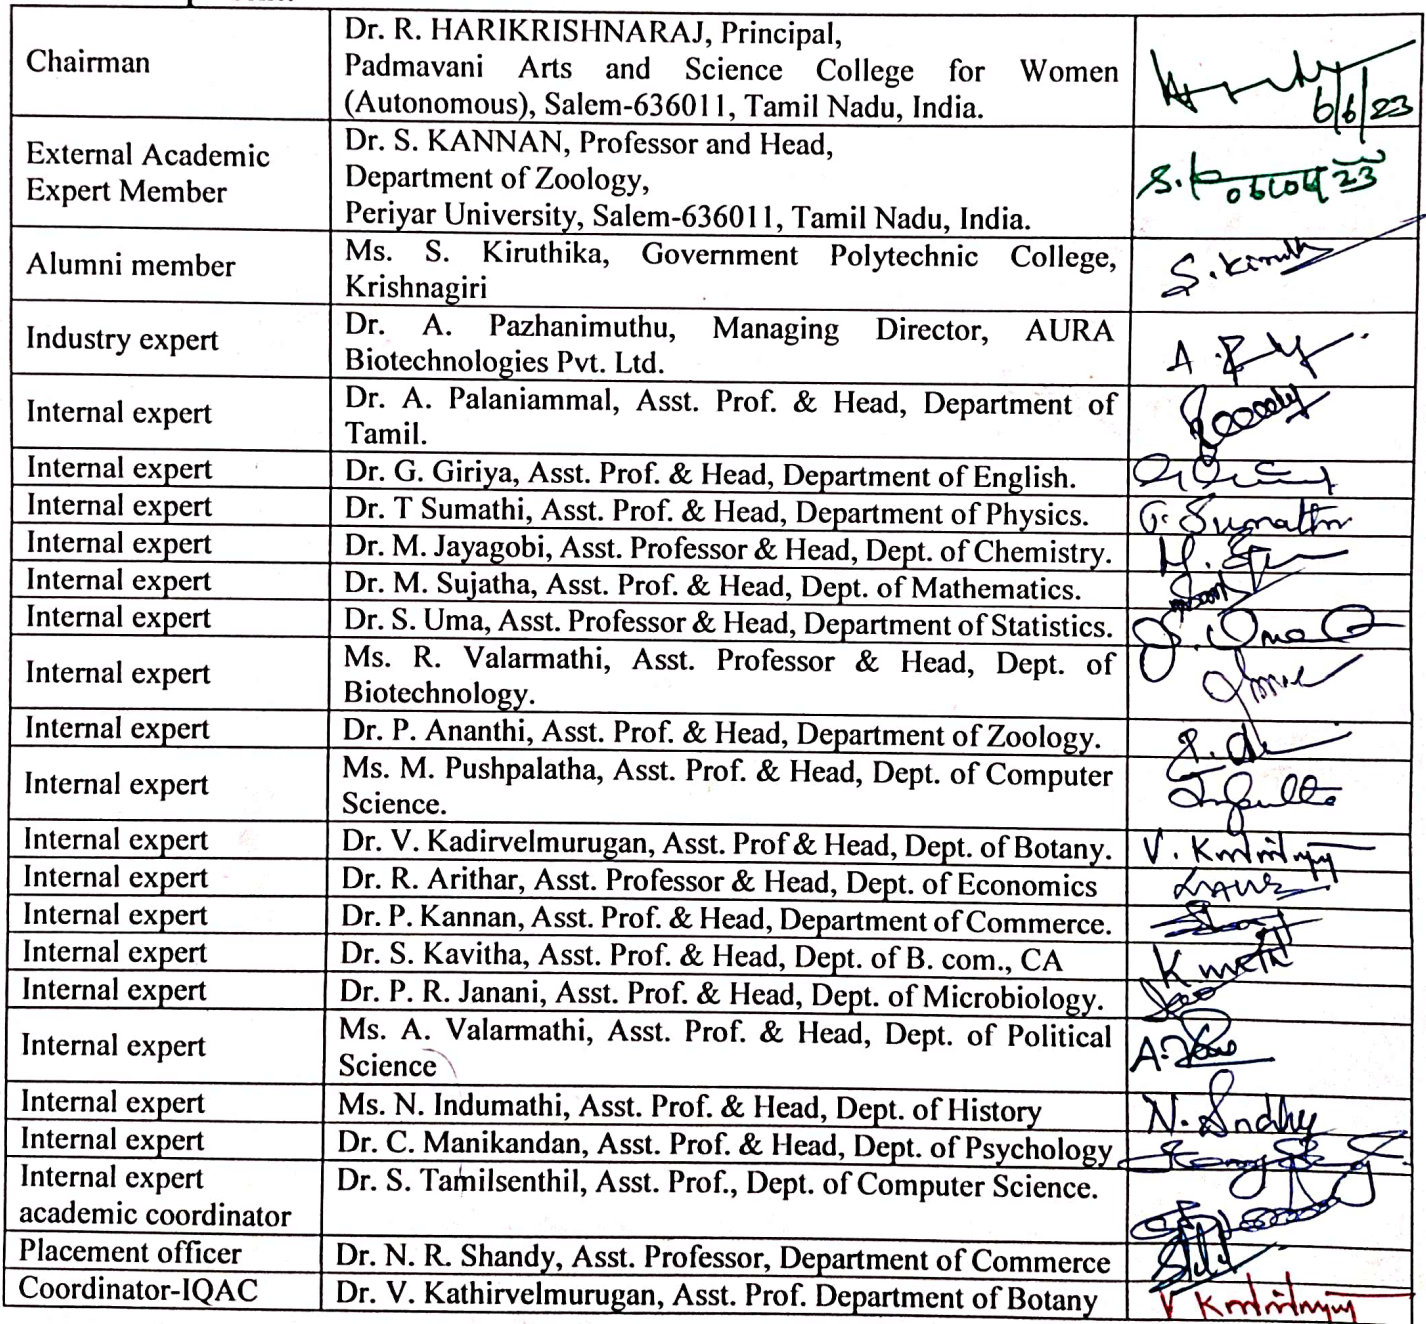 Chairman
Dr. R. HARIKRISHNARAJ, Principal,
Padmavani Arts and Science College for Women
(Autonomous), Salem-636011, Tamil Nadu, India.
6/6/23
External Academic
Expert Member
Dr. S. KANNAN, Professor and Head,
Department of Zoology,
Periyar University, Salem-636011, Tamil Nadu, India.
Alumni member
Ms. S. Kiruthika, Government Polytechnic College,
Krishnagiri
Industry expert
Dr. A. Pazhanimuthu, Managing Director, AURA
Biotechnologies Pvt. Ltd.
Internal expert
Dr. A. Palaniammal, Asst. Prof. & Head, Department of
Tamil.
Internal expert
Dr. G. Giriya, Asst. Prof. & Head, Department of English.
Internal expert
Dr. T Sumathi, Asst. Prof. & Head, Department of Physics.
Internal expert
Dr. M. Jayagobi, Asst. Professor & Head, Dept. of Chemistry.
Internal expert
Dr. M. Sujatha, Asst. Prof. & Head, Dept. of Mathematics.
Internal expert
Dr. S. Uma, Asst. Professor & Head, Department of Statistics.
Internal expert
Ms. R. Valarmathi, Asst. Professor & Head, Dept. of
Biotechnology.
Internal expert
Dr. P. Ananthi, Asst. Prof. & Head, Department of Zoology.
Internal expert
Ms. M. Pushpalatha, Asst. Prof. & Head, Dept. of Computer
Science.
Internal expert
Dr. V. Kadirvelmurugan, Asst. Prof & Head, Dept. of Botany.
Internal expert
Dr. R. Arithar, Asst. Professor & Head, Dept. of Economics
Internal expert
Dr. P. Kannan, Asst. Prof. & Head, Department of Commerce.
Internal expert
Dr. S. Kavitha, Asst. Prof. & Head, Dept. of B. com., CA
Internal expert
Dr. P. R. Janani, Asst. Prof. & Head, Dept. of Microbiology.
Internal expert
Ms. A. Valarmathi, Asst. Prof. & Head, Dept. of Political
Science
Internal expert
Ms. N. Indumathi, Asst. Prof. & Head, Dept. of History
Internal expert
Dr. C. Manikandan, Asst. Prof. & Head, Dept. of Psychology
Internal expert
academic coordinator
Dr. S. Tamilsenthil, Asst. Prof., Dept. of Computer Science.
Placement officer
Dr. N. R. Shandy, Asst. Professor, Department of Commerce
Coordinator-IQAC
Dr. V. Kathirvelmurugan, Asst. Prof. Department of Botany